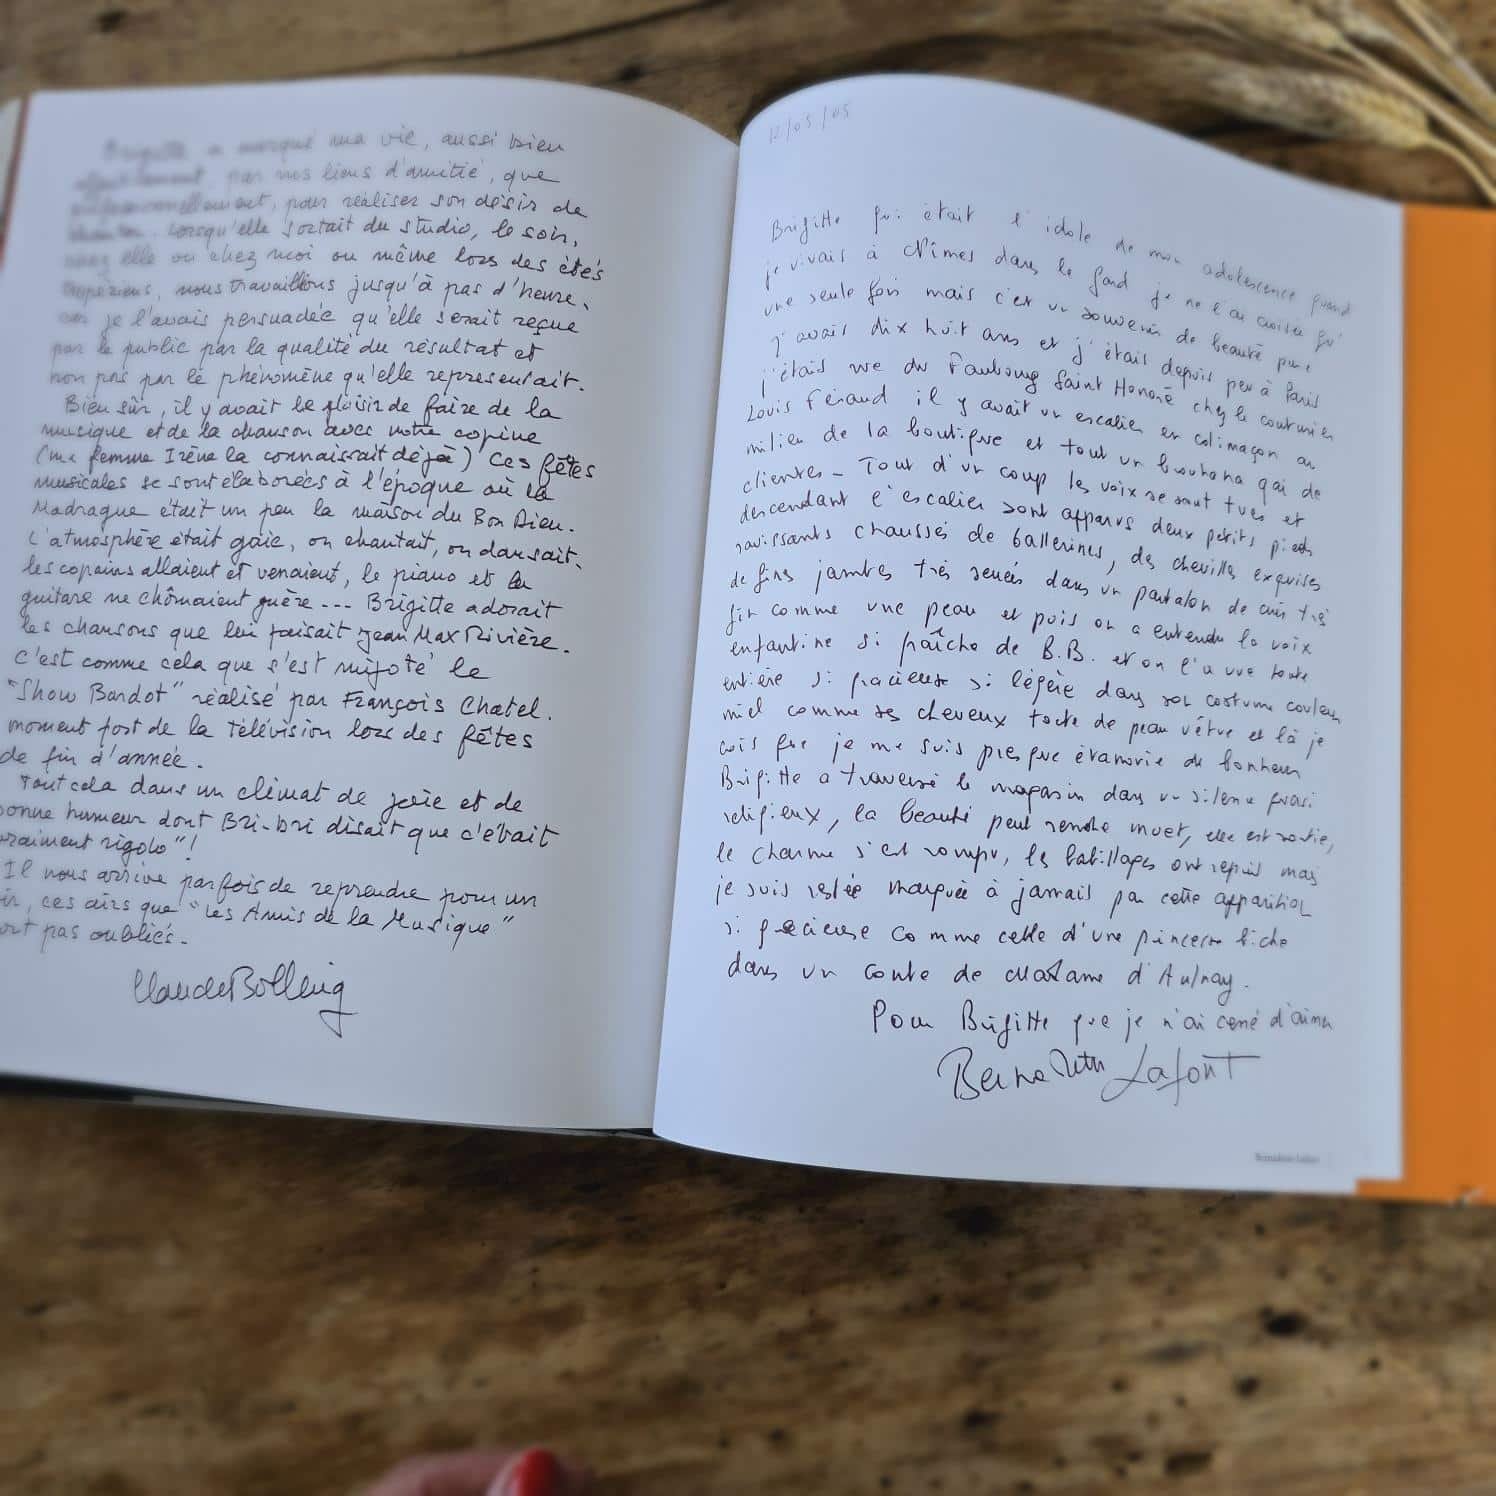 Brigitte a marqué ma vie, aussi bien
affectivement, par nos liens d'amitié, que
professionnellement, pour réaliser son désir de
chanter. Lorsqu'elle sortait du studio, le soir,
chez elle ou chez moi ou même lors des étés
tropéziens, nous travaillions jusqu'à pas d'heure,
car je l'avais persuadée qu'elle serait reçue
par le public par la qualité du résultat et
non pas par le phénomène qu'elle représentait.
Bien sûr, il y avait le plaisir de faire de la
musique et de la chanson avec notre copine
(ma femme Irène la connaissait déjà) Ces fêtes
musicales se sont élaborées à l'époque où la
Madrague était un peu la maison du Bon Dieu.
L'atmosphère était gaie, on chantait, on dansait.
les copains allaient et venaient, le piano et la
guitare ne chômaient guère --- Brigitte adorait
les chansons que lui faisait Jean Max Rivière.
C'est comme cela que s'est mijoté le
"Show Bardot" réalisé par François Chatel.
moment fort de la télévision lors des fêtes
de fin d'année.
Tout cela dans un climat de joie et de
bonne humeur dont Bri-bri disait que c'était
vraiment rigolo"!
Il nous arrive parfois de reprendre pour un
, ces airs que "Les Amis de la Musique"
ont pas oubliés.
Claude Bolling
12/05/05
Brigitte qui était l'idole de mon adolescence quand
je vivais à Nîmes dans le Gard je ne l'ai croisée qu'
une seule fois mais c'est un souvenir de beauté pure
j'avais dix huit ans et j'étais depuis peu à Paris
j'étais rue du Faubourg Saint Honoré chez le couturier
Louis Féraud il y avait un escalier en colimaçon au
milieu de la boutique et tout un brouhaha gai de
clientes - Tout d'un coup les voix se sont tues et
descendant l'escalier sont apparus deux petits pieds
ravissants chaussés de ballerines, des chevilles exquises
de fines jambes très serrées dans un pantalon de cuir très
fin comme une peau et puis on a entendu la voix
enfantine si fraîche de B.B. et on l'a vue toute
entière si gracieuse si légère dans son costume couleur
miel comme ses cheveux toute de peau vêtue et là je
crois que je me suis presque évanouie de bonheur
Brigitte a traversé le magasin dans un silence quasi
religieux, la beauté peut rendre muet, elle est sortie,
le charme s'est rompu, les babillages ont repris mais
je suis restée marquée à jamais par cette apparition
si précieuse comme celle d'une princesse biche
dans un conte de Madame d'Aulnay.
Pour Brigitte que je n'ai cessé d'aimer
Bernadette Lafont
Bernadette Lafont